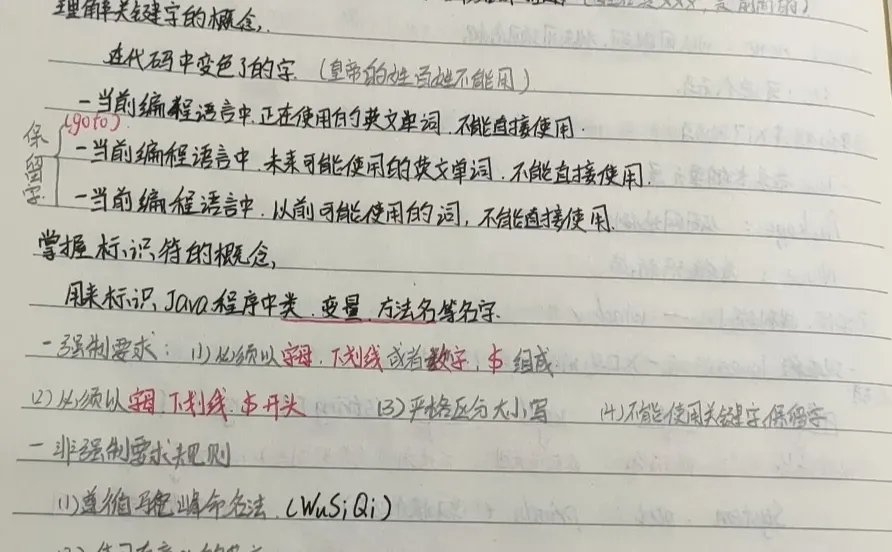 理解关键字的概念,
在代码中变色了的字.(皇帝的姓百姓不能用)
-当前编程语言中.正在使用的的英文单词.不能直接使用.
(goto)
保留字
-当前编程语言中.未来可能使用的英文单词.不能直接使用.
-当前编程语言中.以前可能使用的词,不能直接使用.
掌握标识符的概念,
用来标识Java程序中类.变量.方法名等名字.
-强制要求:(1)必须以字母.下划线或者数字,$组成.
(2)必须以字母.下划线.$开头 (3)严格区分大小写 (4)不能使用关键字.保留字
-非强制要求规则
(1)遵循驼峰命名法.(WuSiQi)